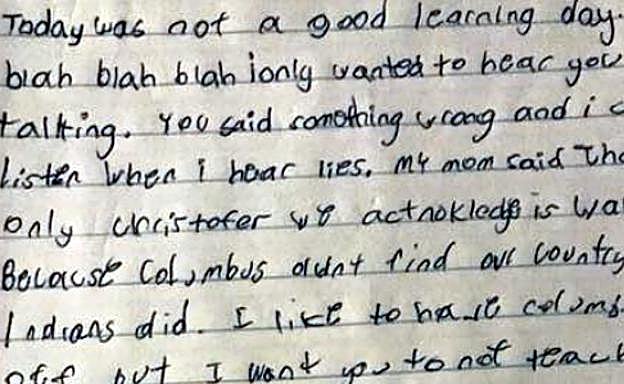 Today was not a good learning day.
blah blah blah i only wanted to hear you
talking. You said somothing wrong and i c
Listen when i hear lies. My mom said Tha
only christofer we acknokledge is Wa
Because Columbus didnt find our country
Indians did. I like to have columb
off but I want you to not teach